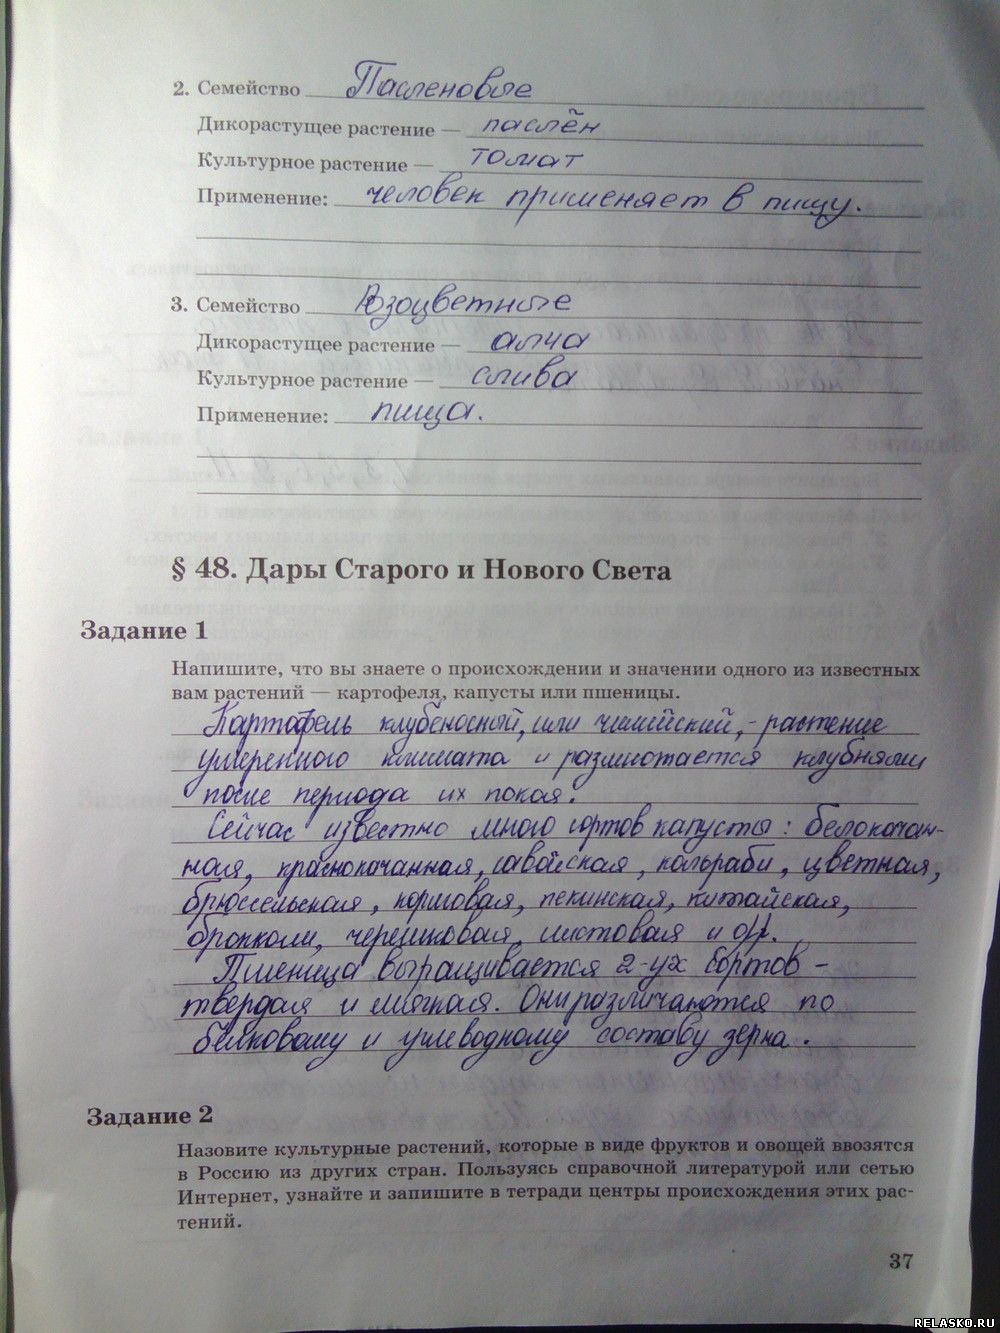 2. Семейство Пасленовые
Дикорастущее растение — паслён
Культурное растение — томат
Применение: человек применяет в пищу.
3. Семейство Розоцветные
Дикорастущее растение — алча
Культурное растение — слива
Применение: пища.
§ 48. Дары Старого и Нового Света
Задание 1
Напишите, что вы знаете о происхождении и значении одного из известных
вам растений — картофеля, капусты или пшеницы.
Картофель клубеносный, или чилийский, - растение
умеренного климата и размножается клубнями
после периода их покоя.
Сейчас известно много сортов капусты: белокачан-
ная, краснокачанная, савойская, кольраби, цветная,
брюссельская, кормовая, пекинская, китайская,
брокколи, черешковая, листовая и др.
Пшеница выращивается 2-ух сортов -
твердая и мягкая. Они различаются по
белковому и углеводному составу зерна.
Задание 2
Назовите культурные растений, которые в виде фруктов и овощей ввозятся
в Россию из других стран. Пользуясь справочной литературой или сетью
Интернет, узнайте и запишите в тетради центры происхождения этих рас-
тений.
37
RELASKO.RU